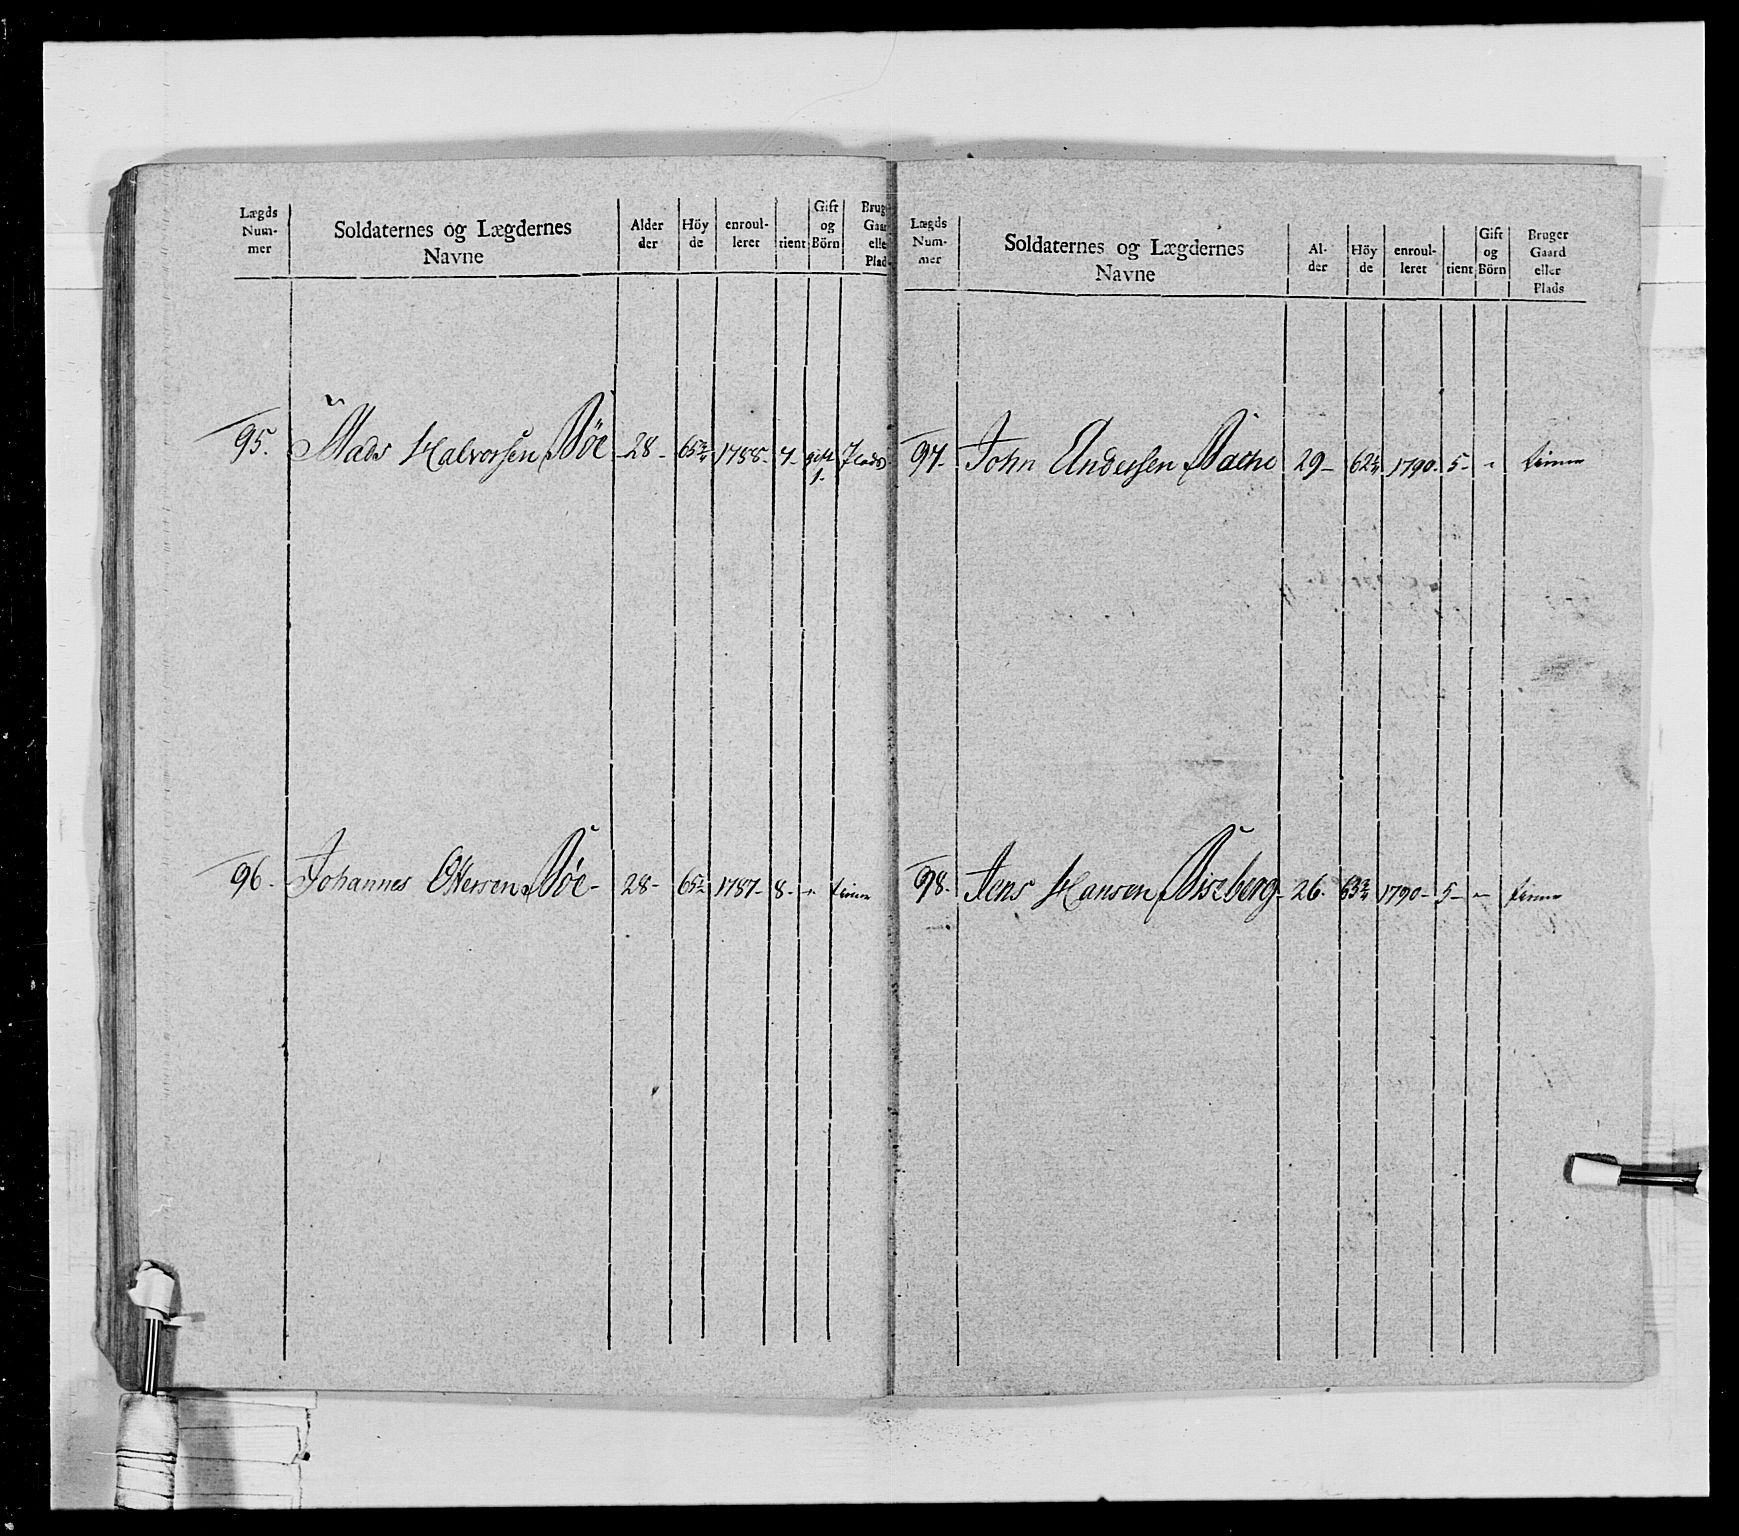 Lægds Num- mer
Soldaternes og Lægdernes Navne
Alder der
Höy de
enroul- leret
tient
Gift og Börn
Brug Gaar elle Plad
95. Mads Halvorsen Bøe 28- 65 1788- 7- gift 1. Plads
96. Johannes Ottersen Bøe- 28- 65 1787- 8- - tiener
Lægds Num- mer
Soldaternes og Lægdernes Navne
Al- der
Höy de
enroul- leret
tient
Gift og Börn
Bruger Gaard eller Plads
97. John Andersen Bache 29- 62 1790- 5- - tiener
98. Jens Hansen Biseberg- 26- 63 1790- 5- - tiener